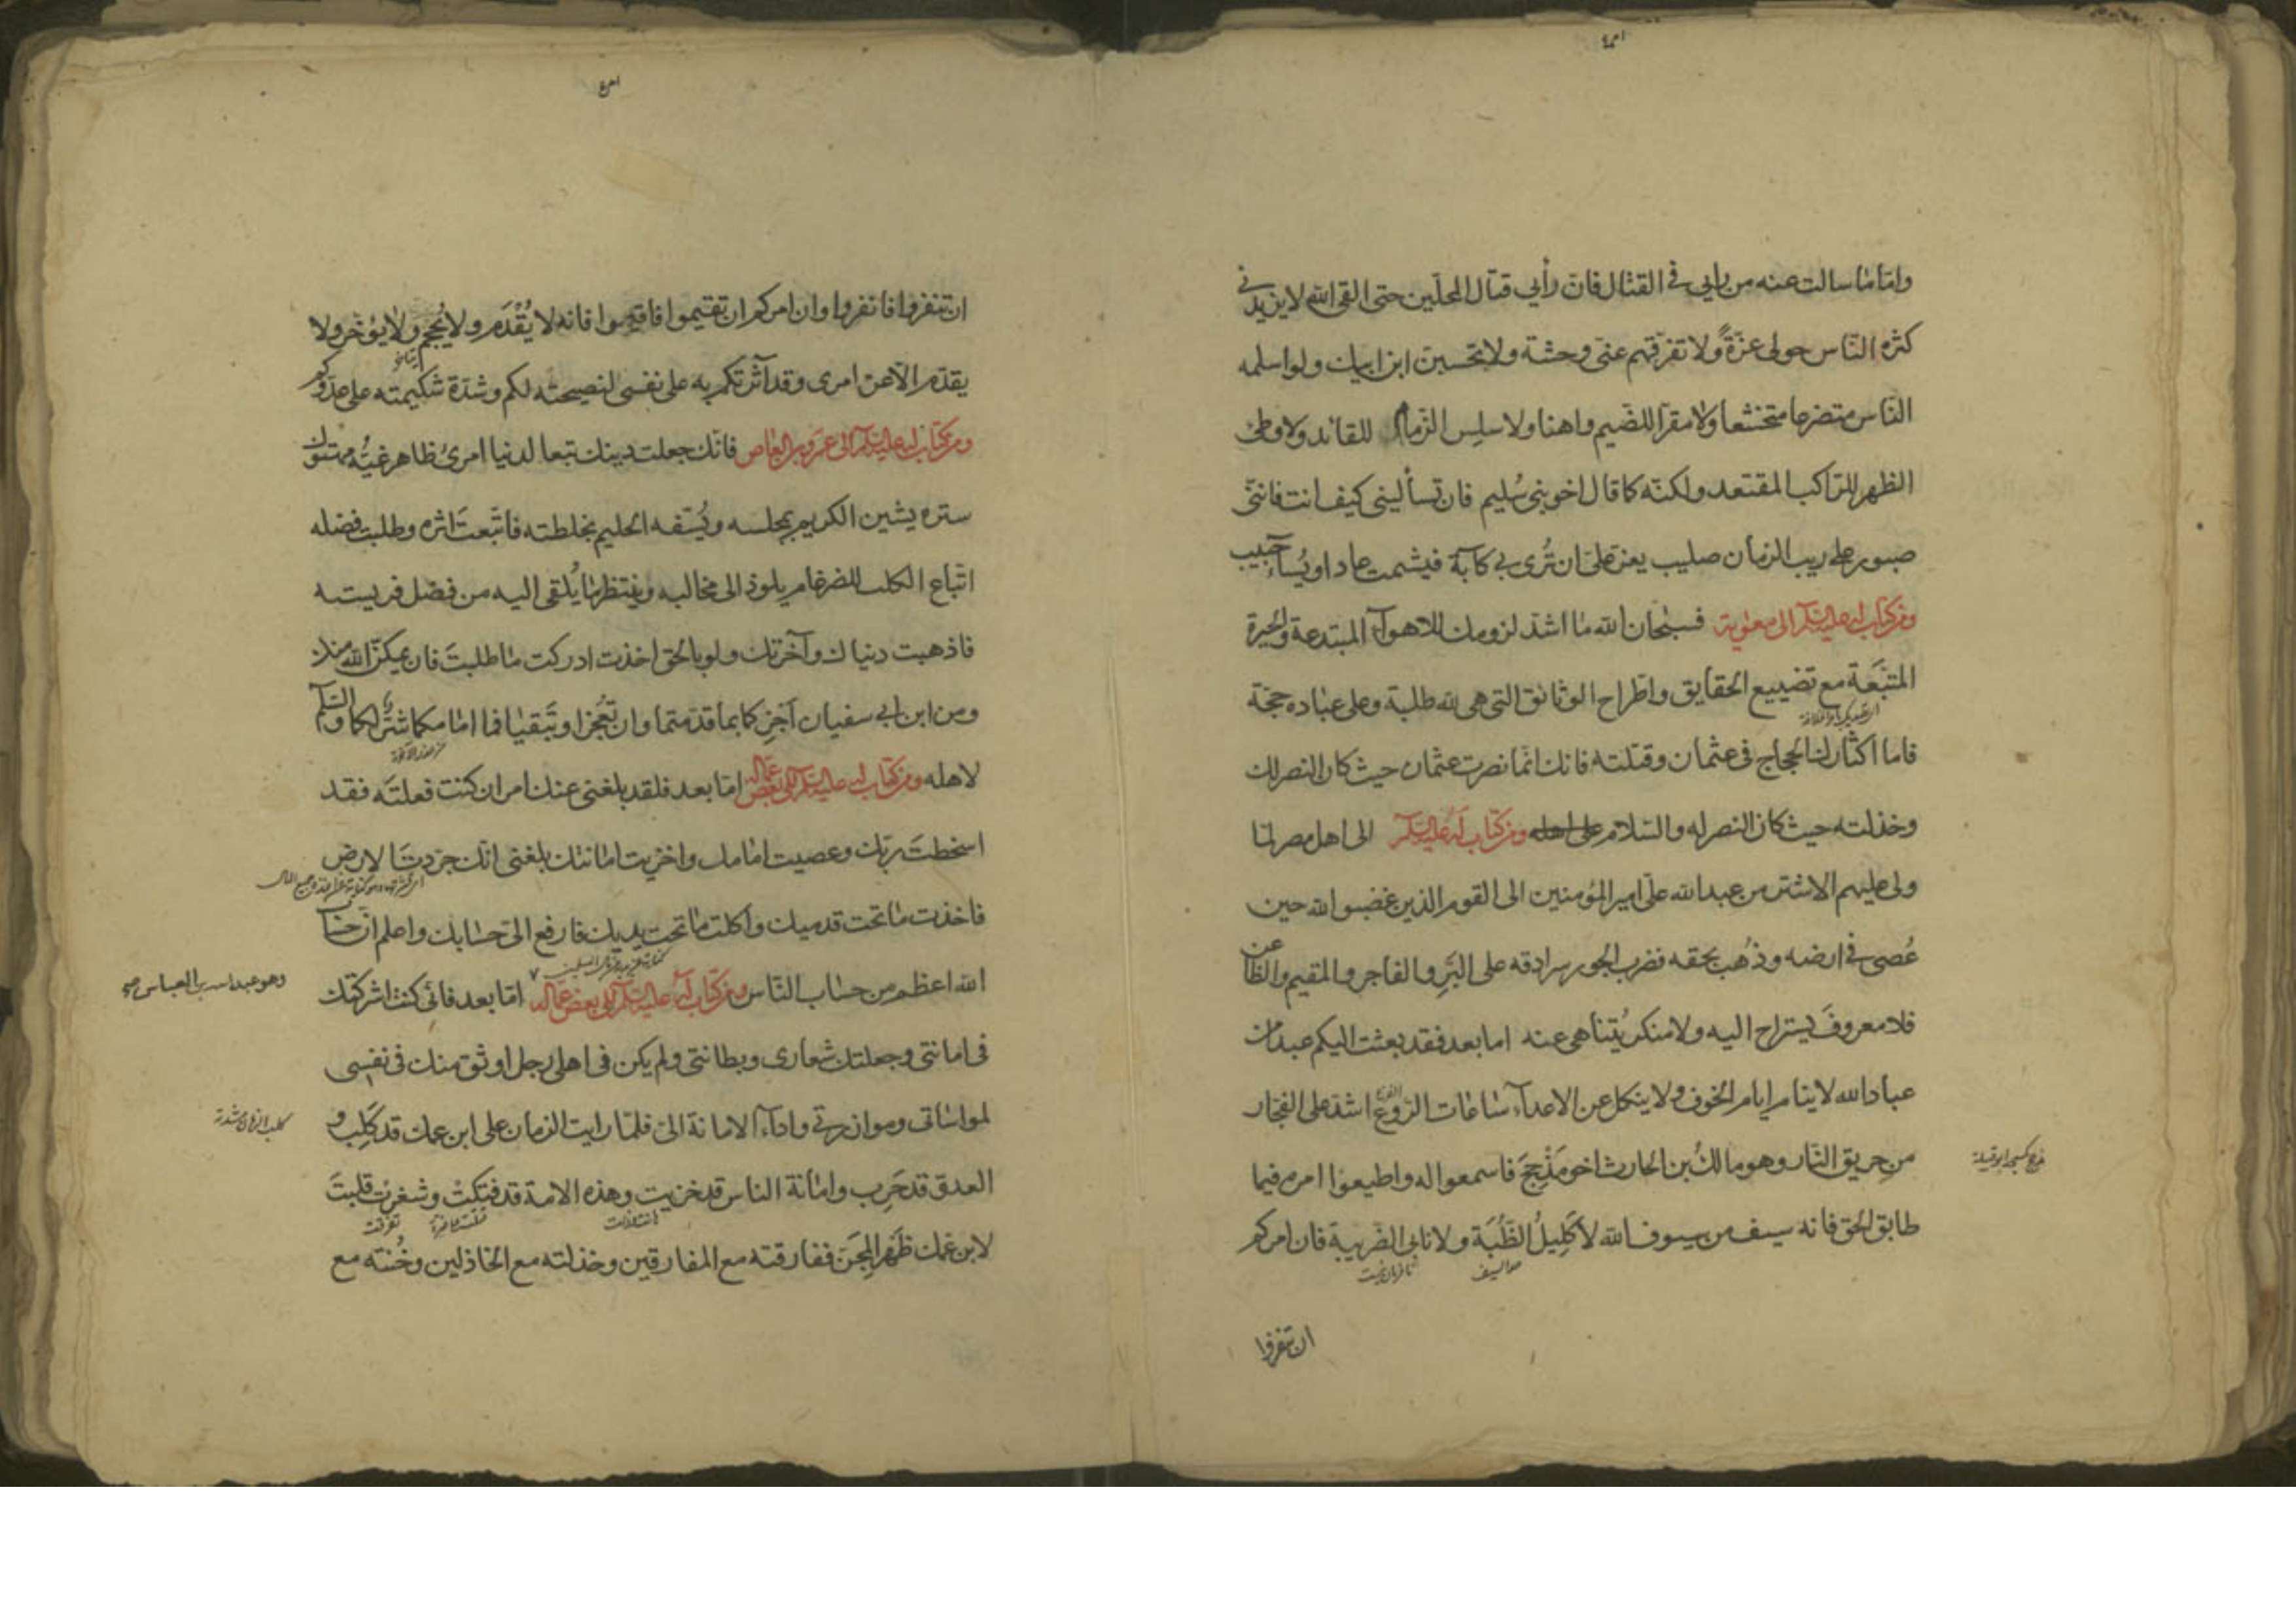 واما ما سالت عنه من رايي في القتال فان رأيي قتال المحلّين حتى القى الله لا يزيدني
كثرة الناس حولي عزّةً ولا تفرّقهم عنّي وحشة ولا تحسبنّ ابن ابيك ولو اسلمه
الناس متضرعا متخشعا ولا مقرّا للضيم واهنا ولا سلس الزمام للقائد ولا وطئ
الظهر للراكب المقتعد ولكنّه كما قال اخو بني سُليم فان تسأليني كيف انت فانني
صبور على ريب الزمان صليب يعز علىّ ان تُرى بي كآبة فيشمت عاد او يُساء حبيب
ومن كتاب له عليه السلام الى معوية فسبحان الله ما اشدّ لزومك للاهوآء المبتدعة والحيرة
المتبَعة مع تضييع الحقايق واطراح الوثائق التي هي لله طلبة وعلى عباده حجّة
فاما اكثارك الحجاج في عثمان وقتلته فانك انّما نصرت عثمان حيث كان النصر لك
وخذلته حيث كان النصر له والسلام على اهله ومن كتاب له عليه السلام الى اهل مصر لمّا
ولى عليهم الاشتر من عبدالله علىّ امير المؤمنين الى القوم الذين غضبوا لله حين
عُصى في ارضه وذُهب بحقه فضرب الجور سرادقه على البَرّ والفاجر والمقيم والظاعن
فلا معروفَ يستراح اليه ولا منكر يُتناهى عنه اما بعد فقد بعثت اليكم عبدا من
عباد الله لا ينام ايام الخوف ولا ينكل عن الاعدآء ساعات الرّوع اشدّ على الفجار
من حريق النّار وهو مالكُ بن الحارث اخو مَذْحِجَ فاسمعوا له واطيعوا امره فيما
طابق الحق فانه سيف من سيوف الله لا كَلِيلُ الظُّبَة ولا نابى الضّريبة فان امركم
ان تنفروا
ان تنفروا فانفروا وان امركم ان تقيموا فاقيموا فانه لا يُقْدَم ولا يُحجم ولا يؤخّر ولا
يقدّم الّا عن امرى وقد آثرتكم به على نفسى لنصيحته لكم وشدّة شكيمته على عدوّكم
ومن كتاب له عليه السلام الى عمرو بن العاص فانّك جعلت دينك تبعا لدنيا امرئ ظاهر غيُّه مهتوك
ستره يشين الكريم بمجلسه ويُسَفه الحليم بخلطته فاتّبعتَ اثره وطلبت فضله
اتّباع الكلب للضرغام يلوذ الى مخالبه وينتظر ما يُلقى اليه من فضل فريسته
فاذهبت دنياك وآخرتك ولو بالحق اخذت ادركت ما طلبتَ فان يمكنّ الله منك
ومن ابن ابي سفيان آجزِكما بما قدّمتما وان تُعجزا وتَبقيا فما امامكما شرّ لكما والسّلام
لاهله ومن كتاب له عليه السلام الى بعض عماله امّا بعد فلقد بلغنى عنك امر ان كنت فعلتَه فقد
اسخطتَ ربّك وعصيت امامك واخزيت امانتك بلغنى انّك جرّدتَ الارض
فاخذت ما تحت قدميك واكلت ما تحت يديك فارفع الىّ حسابك واعلم انّ حساب
الله اعظم من حساب النّاس ومن كتاب له عليه السلام الى بعض عماله امّا بعد فانى كنت اشركتك
وهو عبد الله بن العباس
فى امانتى وجعلتك شعارى وبطانتى ولم يكن فى اهلى رجل اوثق منك فى نفسى
لمواساتى وموازرتى واداء الامانة الىّ فلمّا رايت الزمان على ابن عمك قد كَلِب و
العدوّ قد حَرِب وامانة الناس قد خزيت وهذه الامة قد فتكتْ وشغرت قلبتَ
لابن عمك ظَهر المِجَن ففارقته مع المفارقين وخذلته مع الخاذلين وخُنته مع